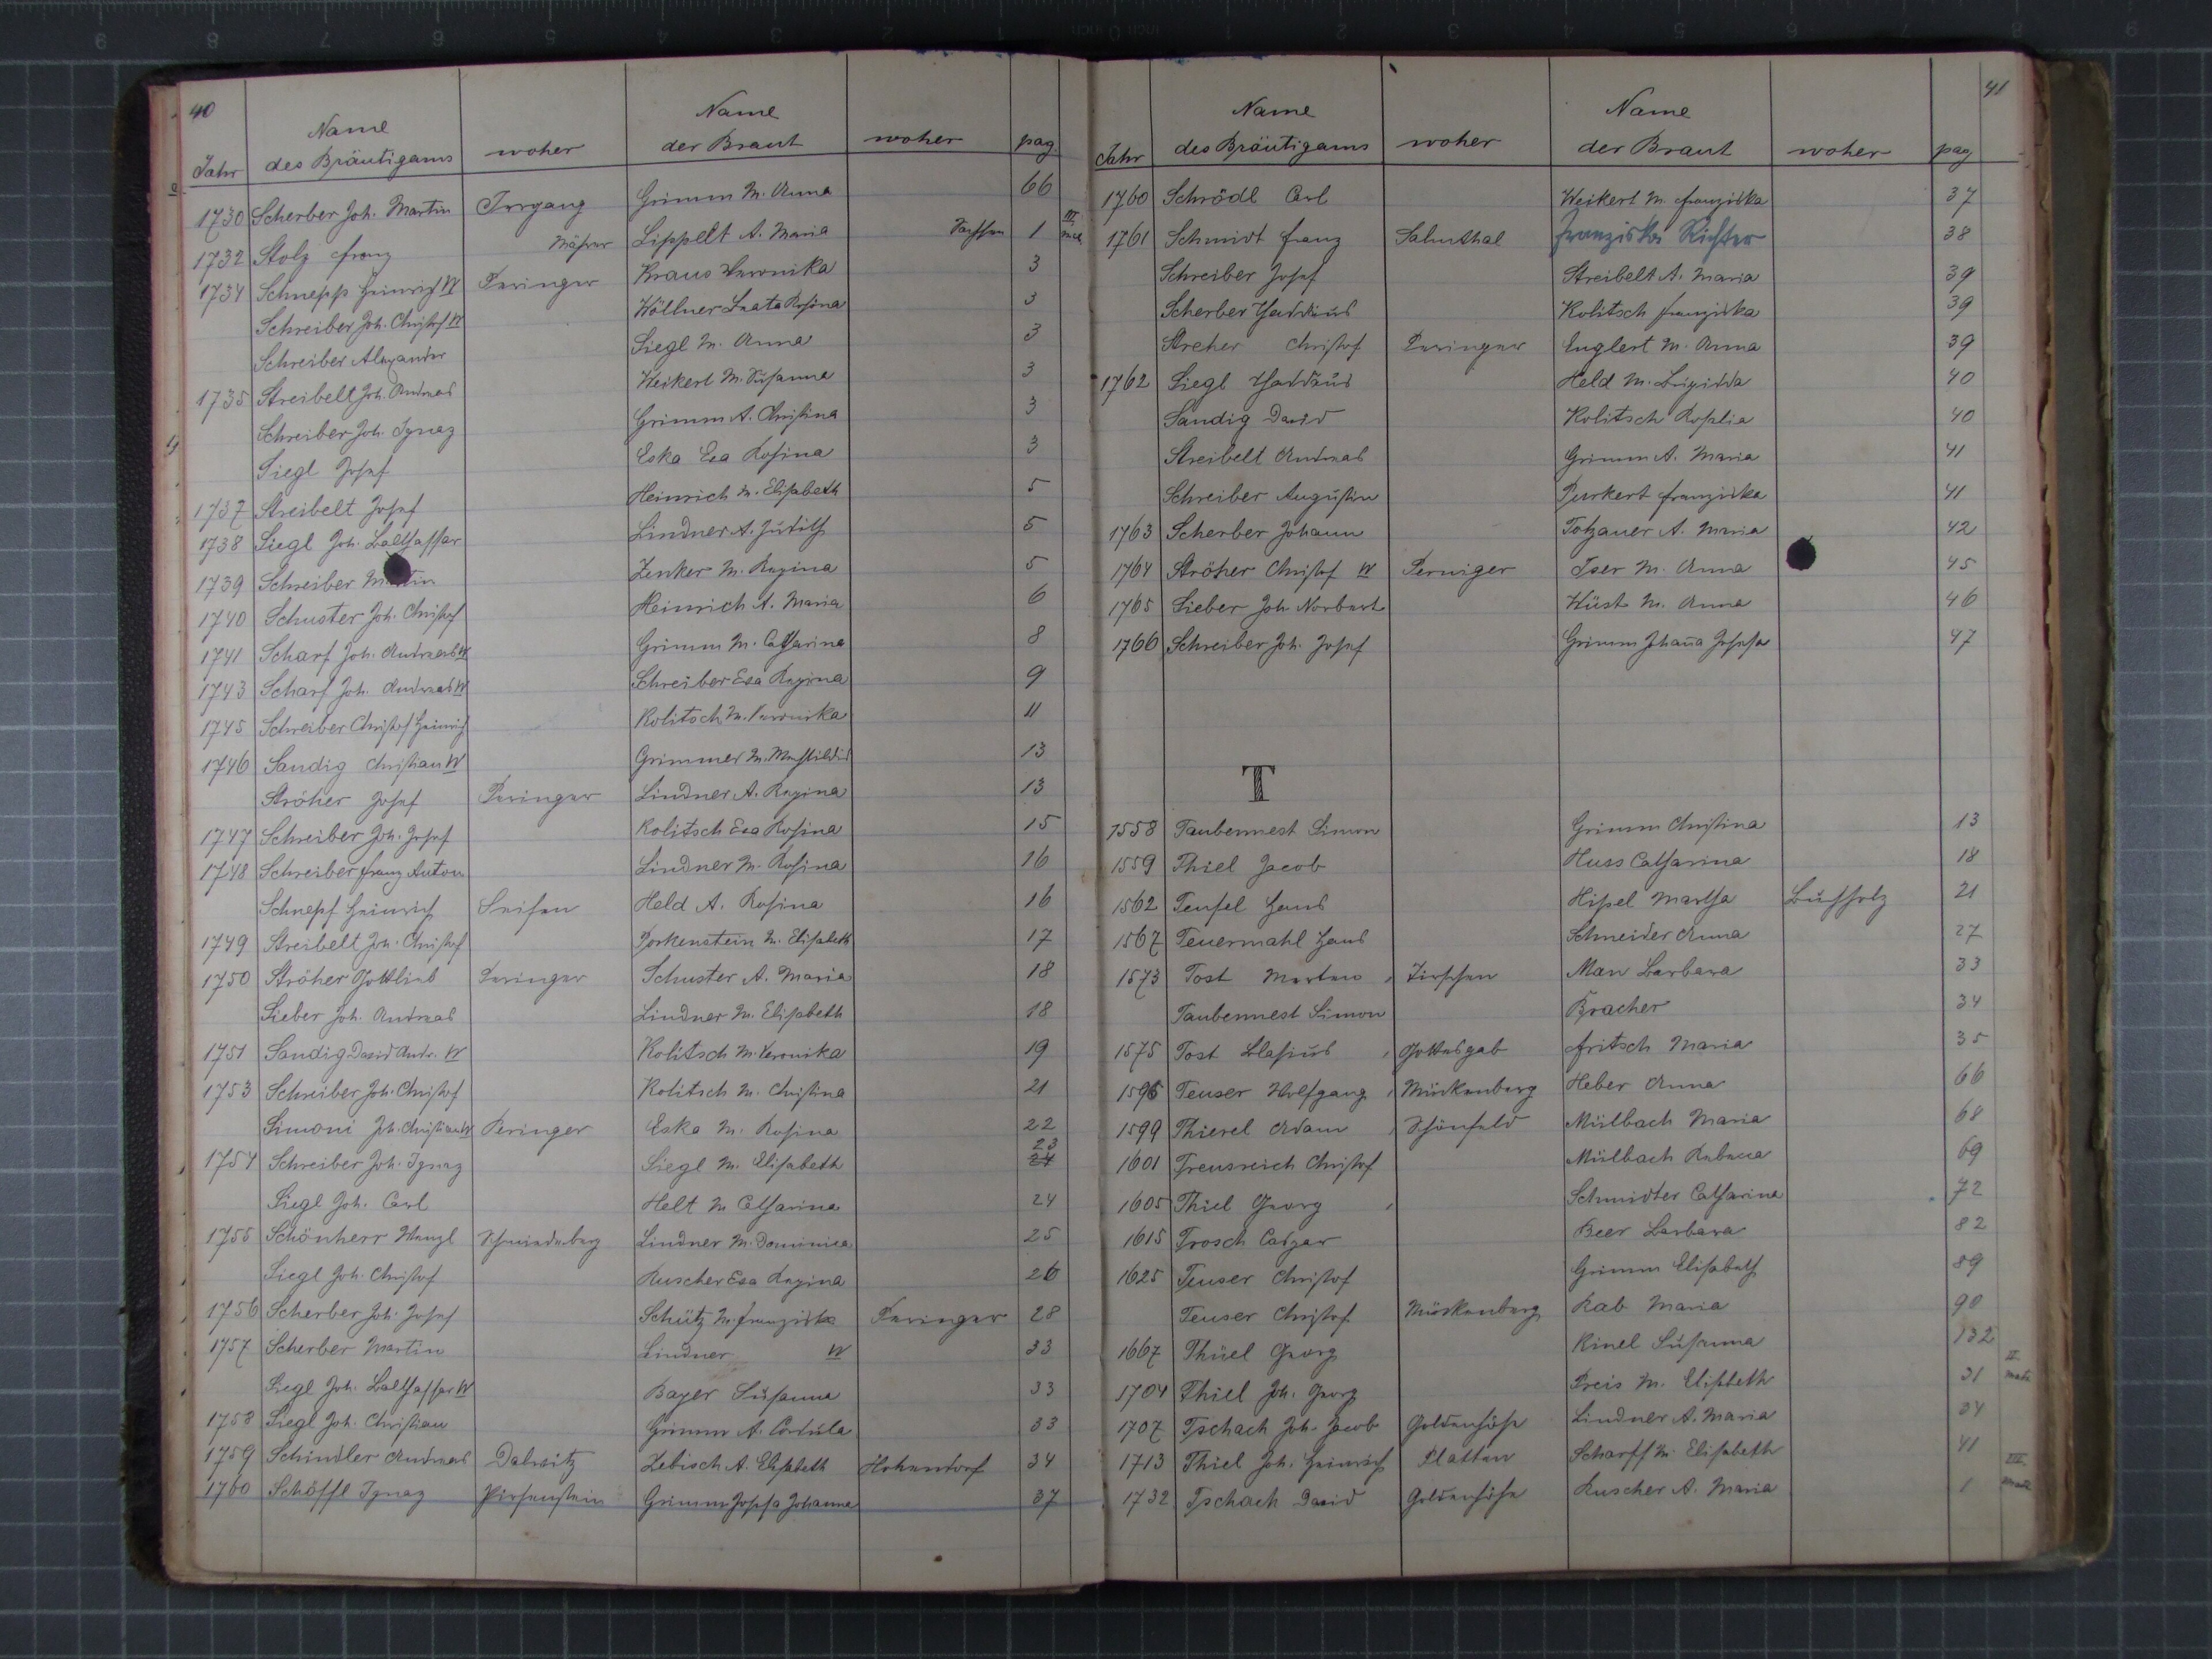 40
Jahr Name des Bräutigams woher Name der Braut woher pag.
1730 Scherber Joh. Martin Irrgang Grimm M. Anna 66
1732 Stolz Franz Mährer Lippelt A. Maria Sachsen 1 III.
1734 Schnepp Heinrich W Peringer Kraus Veronika 3
Schreiber Joh. Christof W Wöllner Beata Rosina 3
Schreiber Alexander Siegl M. Anna 3
1735 Streibelt Joh. Andreas Weikert M. Susanna 3
Schreiber Joh. Ignaz Grimm A. Christina 3
Siegl Josef Eska Eva Rosina 3
1737 Streibelt Josef Heinrich M. Elisabeth 5
1738 Siegl Joh. Balthassar Lindner A. Judith 5
1739 Schreiber Martin Zenker M. Regina 5
1740 Schuster Joh. Christof Heinrich A. Maria 6
1741 Scharf Joh. Andreas W Grimm M. Catharina 8
1743 Scharf Joh. Andreas W Schreiber Eva Regina 9
1745 Schreiber Christof Heinrich Kolitsch M. Veronika 11
1746 Sandig Christian W Grimmer M. Mechtildis 13
Ströher Josef Peringer Lindner A. Regina 13
1747 Schreiber Joh. Josef Kolitsch Eva Rosina 15
1748 Schreiber Franz Anton Lindner M. Rosina 16
Schnepf Heinrich Seifen Held A. Rosina 16
1749 Streibelt Joh. Christof Porkenstein M. Elisabeth 17
1750 Ströher Gottlieb Peringer Schuster A. Maria 18
Sieber Joh. Andreas Lindner M. Elisabeth 18
1751 Sandig David Andr. W Kolitsch M. Veronika 19
1753 Schreiber Joh. Christof Kolitsch M. Christina 21
Simoni Joh. Christian W Peringer Eska M. Rosina 22
1754 Schreiber Joh. Ignaz Siegl M. Elisabeth 23 24
Siegl Joh. Carl Helt M Catharina 24
1755 Schönherr Wenzl Schmiedeberg Lindner M. Dominica 25
Siegl Joh. Christof Ruscher Eva Regina 26
1756 Scherber Joh. Josef Schütz M. Franziska Peringer 28
1757 Scherber Martin Lindner W 33
Siegl Joh. Balthassar W Bayer Susanna 33
1758 Siegl Joh. Christian Grimm A. Cordula 33
1759 Schindler Andreas Dalwitz Zebisch A. Elisabeth Hohendorf 34
1760 Schöffl Ignaz Pirsenstein Grimm Josefa Johanna 37
41
Jahr Name des Bräutigams woher Name der Braut woher pag
1760 Schrödl Carl Weikert M. Franziska 37
1761 Schmidt Franz Salmthal Franziska Richter 38
Schreiber Josef Streibelt A. Maria 39
Scherber Thaddäus Kolitsch Franziska 39
Streher Christof Peringer Englert M. Anna 39
1762 Siegl Thaddäus Held M. Brigitta 40
Sandig David Kolitsch Rosalia 40
Streibelt Andreas Grimm A. Maria 41
Schreiber Augustin Purkert Franziska 41
1763 Scherber Johann Totzauer A. Maria 42
1764 Ströher Christof W Perniger Iser M. Anna 45
1765 Sieber Joh Norbert Wüst M. Anna 46
1766 Schreiber Joh. Josef Grimm Johana Josefa 47
T
1558 Taubennest Simon Grimm Christina 13
1559 Thiel Jacob Huss Catharina 18
1562 Teufel Hans Hisel Martha Buchholz 21
1567 Feuermahl Hans Schneider Anna 27
1573 Tost Merten Zirschen Man Barbara 33
Taubennest Simon Bracher 34
1575 Tost Blasius Gottesgab Fritsch Maria 35
1596 Teuser Wolfgang Mückenberg Heber Anna 66
1599 Thierel Adam Schönfeld Mülbach Maria 68
1601 Treusreich Christof Mülbach Rebecca 69
1605 Thiel Georg Schmidter Catharina 72
1615 Trosch Caspar Beer Barbara 82
1625 Teuser Christof Grimm Elisabeth 89
Teuser Christof Mückenberg Rab Maria 90
1667 Thüel Georg Kinel Susanna 132
1704 Thiel Joh. Georg Preis M. Elisbeth 31 II.
1707 Tschach Joh. Jacob Goldenhöhe Lindner A. Maria 34
1713 Thiel Joh. Heinrich Platten Scharff M. Elisabeth 41
1732 Tschach David Goldenhöhe Ruscher A. Maria 1 III.